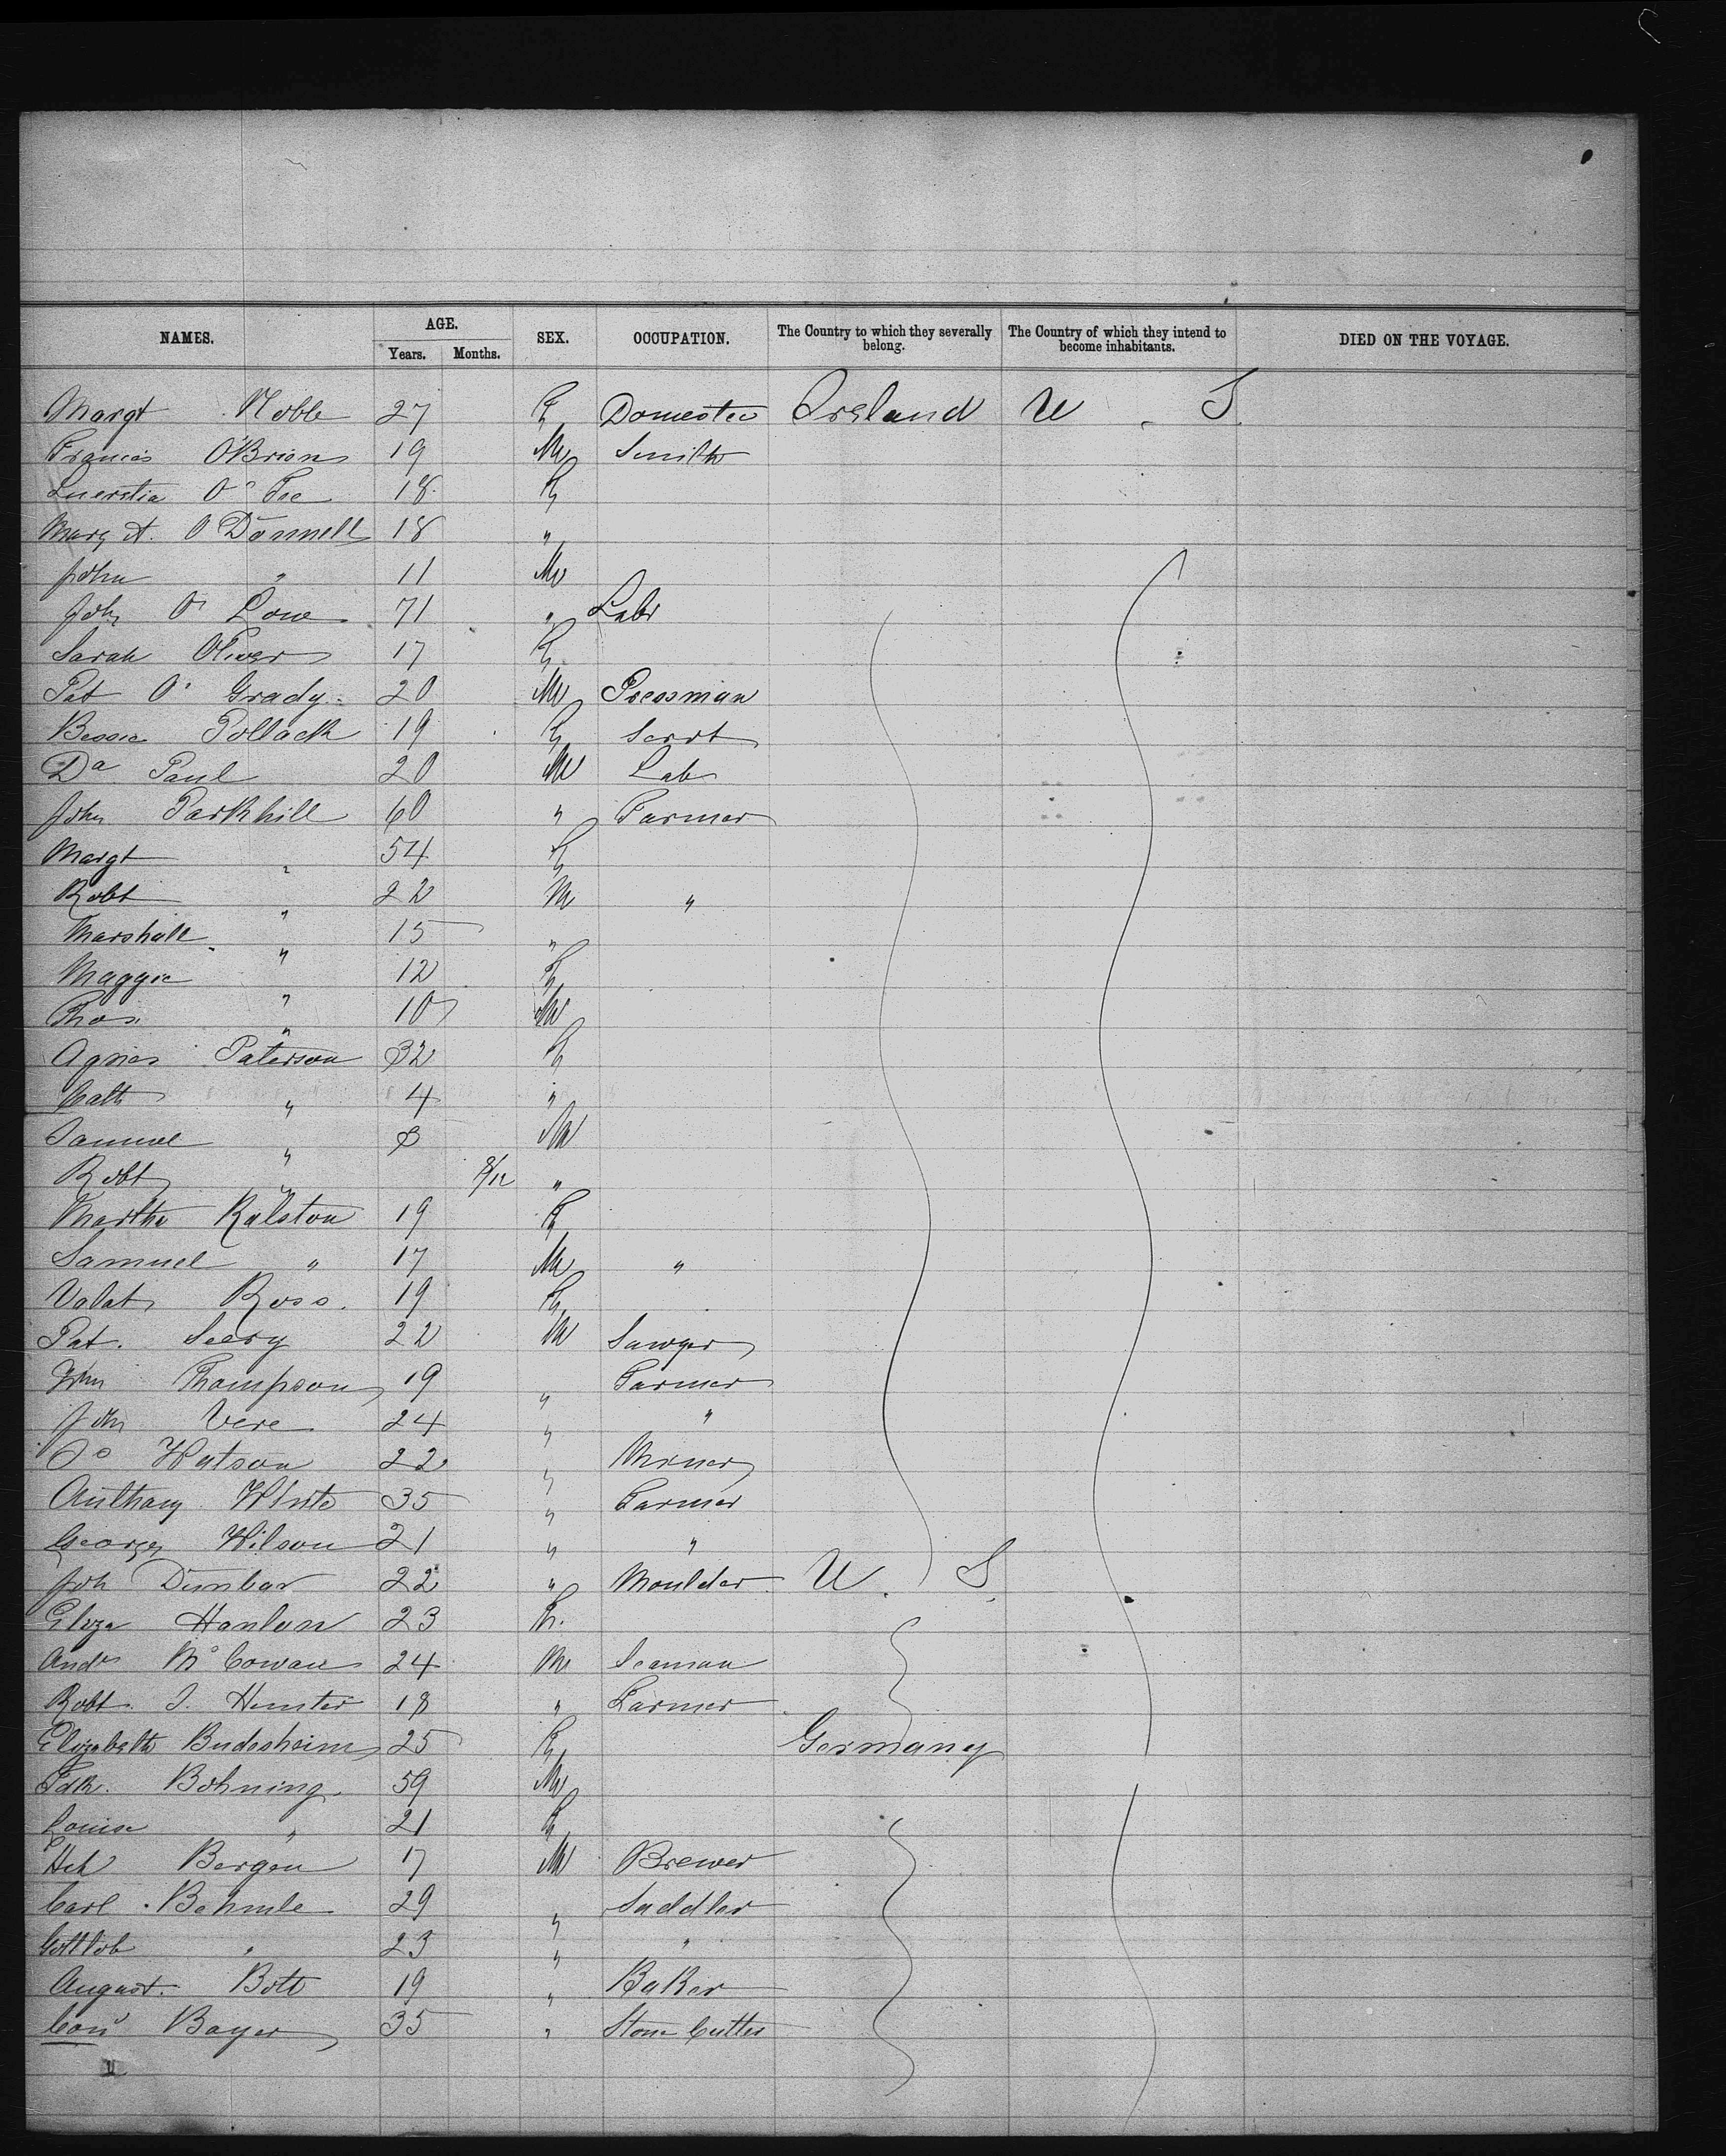 NAMES. AGE. Years. Months. SEX. OCCUPATION. The Country to which they severally belong. The Country of which they intend to become inhabitants. DIED ON THE VOYAGE.
Margt Noble 27 F Domestic Ireland U. S.
Francis O'Brien 19 M Smith
O' 18 F
O'Donnell 18 "
John " 11 M
John O' 71 " Labr
Sarah Oliver 17 F
Pat O' Grady 20 M Pressman
Bessie Pollack 19 F Servt
Da Paul 20 M Lab
John Parkhill 60 " Farmer
Margt " 54 F
Robt " 22 M "
Marshall " 15 "
Maggie " 12 F
Thos. " 10 M
Agnes Paterson 32 F
Cath " 4 "
Samuel " 3 M
Robt " 8/12 "
Martha Ralston 19 F
Samuel " 17 M "
Ross. 19 F
Pat. Seery 22 M Sawyer
Thompson 19 " Farmer
John Vere 24 " "
Do Watson 22 " Miner
Anthony White 35 " Farmer
George Wilson 21 " "
Joh Dunbar 22 " Moulder U. S.
Eliza Hanlon 23 F.
Andw McCowan 24 M Seaman
Robt. J. Hunter 18 " Farmer
Elizabeth Budesheim 25 F Germany
Fdk. Bohning. 59 M
Louise " 21 F
Bergen 17 M Brewer
Carl 29 " Saddler
Gottlob " 23 " "
August. Bott 19 " Baker
Bayer 35 " Stone Cutter